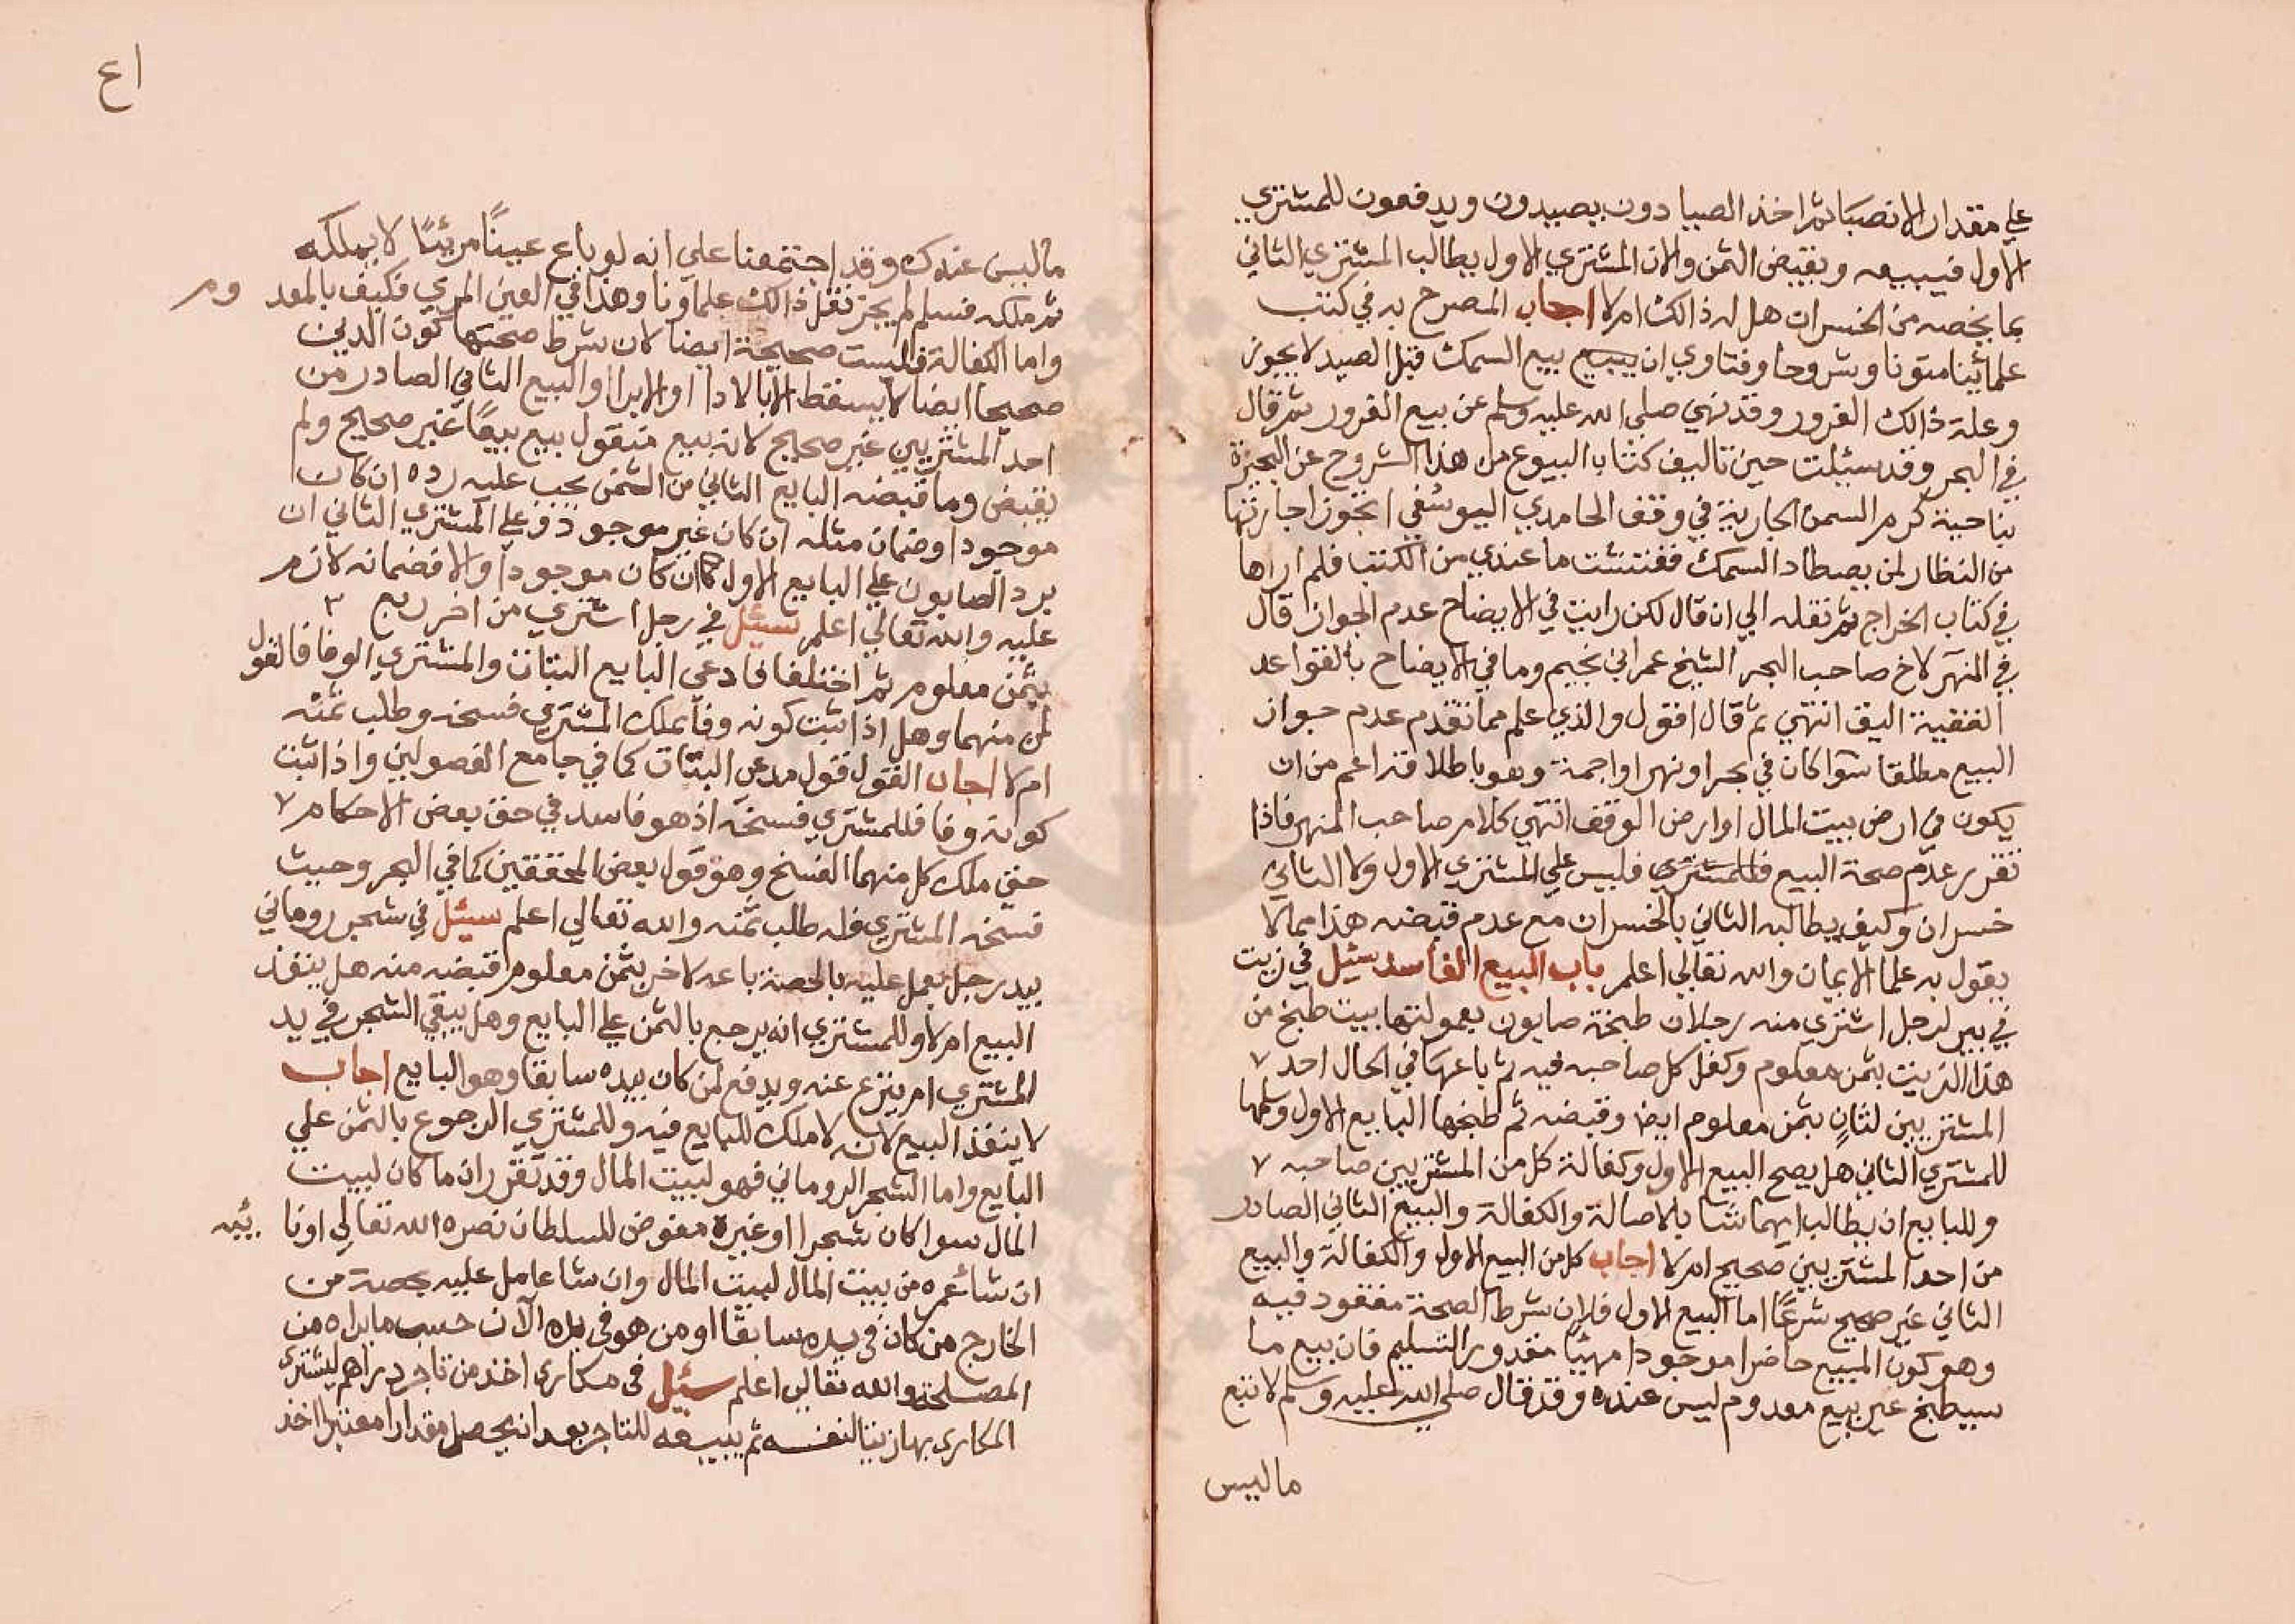 علي مقدار الانصبا ثم اخذ الصيادون يصيدون ويدفعون للمشتري
الاول فيبيعه ويقبض الثمن والان المشتري الاول يطالب المشتري الثاني
بما يخصه من الخسران هل له ذالك ام لا اجاب المصرح به في كتب
علمائنا متونا وشروحا وفتاوي ان يبيع بيع السمك قبل الصيد لا يجوز
وعلة ذالك الغرور وقد نهي صلى الله عليه وسلم عن بيع الغرور ثم قال
في البحر وقد سيلت حين تاليف كتاب البيوع من هذا الشروح عن البحيرة
بناحية كرم السمن الجارية في وقف الحامدي اليوسفي اتجوز اجارتها
من النظار لمن يصطاد السمك ففتشت ما عندي من الكتب فلم اراها
في كتاب الخراج ثم نقله الي ان قال لكن رايت في الايضاح عدم الجواز قال
في النهر لاخ صاحب البحر الشيخ عمر ابن نجيم وما في الايضاح بالقواعد
الفقهية اليق انتهي ثم قال اقول والذي علم مما تقدم عدم جواز
البيع مطلقا سوا كان في بحر او نهر او اجمة وهو باطلاقه اعم من ان
يكون في ارض بيت المال او ارض الوقف انتهي كلام صاحب المنهر فاذا
تقرر عدم صحة البيع فللمشتري فليس علي المشتري الاول ولا الثاني
خسران وكيف يطالبه الثاني بالخسران مع عدم قبضه هذا مما لا
يقول به علما الايمان والله تعالي اعلم باب البيع الفاسد سيئل في زيت
في بير لرجل اشتري منه رجلان طبخة صابون يعمولتها ببيت طبخ من
هذا الزيت بثمن معلوم وكفل كل صاحبه فيه ثم باعها في الحال احد ٧
المشتريين لثان بثمن معلوم ايضا وقبضه ثم طبخها البايع الاول وسلمها
للمشتري الثاني هل يصح البيع الاول وكفالة كل من المشتريين صاحبه ٧
وللبايع ان يطالب ايهما شا بالاصالة والكفالة والبيع الثاني الصادر
من احد المشتريين صحيح ام لا اجاب كل من البيع الاول والكفالة والبيع
الثاني غير صحيح شرعا اما البيع الاول فلان شرط الصحة مفقود فيه
وهو كون المبيع حاضرا موجودا مهيئا مقدور التسليم فان بيع ما
سيطبخ عير بيع معدوم ليس عنده وقد قال صلى الله عليه وسلم لا تبع
ماليس
اع
ما ليس عندك وقد اجتمعنا علي انه لو باع عينا مرئيا لا يملكه
ثم ملكه فسلم لم يجز نقل ذالك علماونا وهذا في العين المري فكيف بالمعد وم
واما الكفالة فليست صحيحة ايضا لان شرط صحتها كون الدين
صحيحا ايضا لا يسقط الا بالادا او الابرا والبيع الثاني الصادر من
احد المشتريين غير صحيح لانه بيع منقول بيع بيعا غير صحيح ولم
يقبض وما قبضه البايع الثاني من الثمن يجب عليه رده ان كان
موجودا وضمان مثله ان كان غير موجود وعلي المشتري الثاني ان
يرد الصابون علي البايع الاول ان كان موجودا والا فضمانه لازم
عليه والله تعالي اعلم سيئل في رجل اشتري من اخر ربع ٣
بثمن معلوم ثم اختلفا فادعي البايع البتات والمشتري الوفا فالقول
لمن منهما وهل اذا ثبت كونه وفا يملك المشتري فسخه وطلب ثمنه
ام لا اجاب القول قول مدعي البتات كما في جامع الفصولين واذا ثبت
كونه وفا فللمشتري فسخه اذ هو فاسد في حق بعض الاحكام ٧
حتي ملك كل منهما الفسخ وهو قول بعض المحققين كما في البحر وحيث
فسخه المشتري فله طلب ثمنه والله تعالي اعلم سيئل في شجر روماني
بيد رجل يعمل عليه بالحصة باعه لاخر بثمن معلوم قبضه منه هل ينفذ
البيع ام لا وللمشتري انه يرجع بالثمن علي البايع وهل يبقي الشجر في يد
المشتري ام ينزع عنه ويدفع لمن كان بيده سابقا وهو البايع اجاب
لا ينفذ البيع لانه لا ملك للبايع فيه وللمشتري الرجوع بالثمن علي
البايع واما الشجر الروماني فهو لبيت المال وقد تقرر ان ما كان لبيت
المال سوا كان شجرا او غيره مفوض للسلطان نصره الله تعالي اونا ئيبه
ان شا عمره من بيت المال لبيت المال وان شا عامل عليه بحصة من
الخارج من كان في يده سابقا او من هو في يده الآن حسب ما يراه من
المصلحة والله تعالى اعلم سئيل في مكاري اخذ من تاجر دراهم ليشتري
المكاري بها زيتا لنفسه ثم يبيعه للتاجر بعد ان يحصل مقدارا معتبرا اخذ